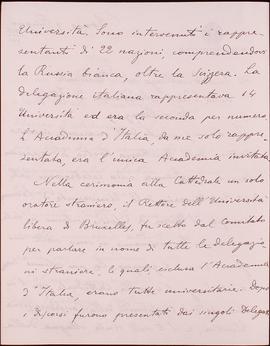 Università. Sono intervenuti i rappre-
sentanti di 22 nazioni, comprendendovi
la Russia bianca, oltre la Svizzera. La
delegazione italiana rappresentava 14
Università ed era la seconda per numero.
L'Accademia d'Italia, da me solo rappre-
sentata, era l'unica Accademia invitata.
Nella cerimonia alla Cattedrale un solo
oratore straniero, il Rettore dell'Università
libera di Bruxelles, fu scelto dal Comitato
per parlare in nome di tutte le delegazio-
ni straniere, le quali esclusa l'Accademia
d'Italia, erano tutte universitarie. Dopo
i discorsi furono presentati dai singoli Delegati